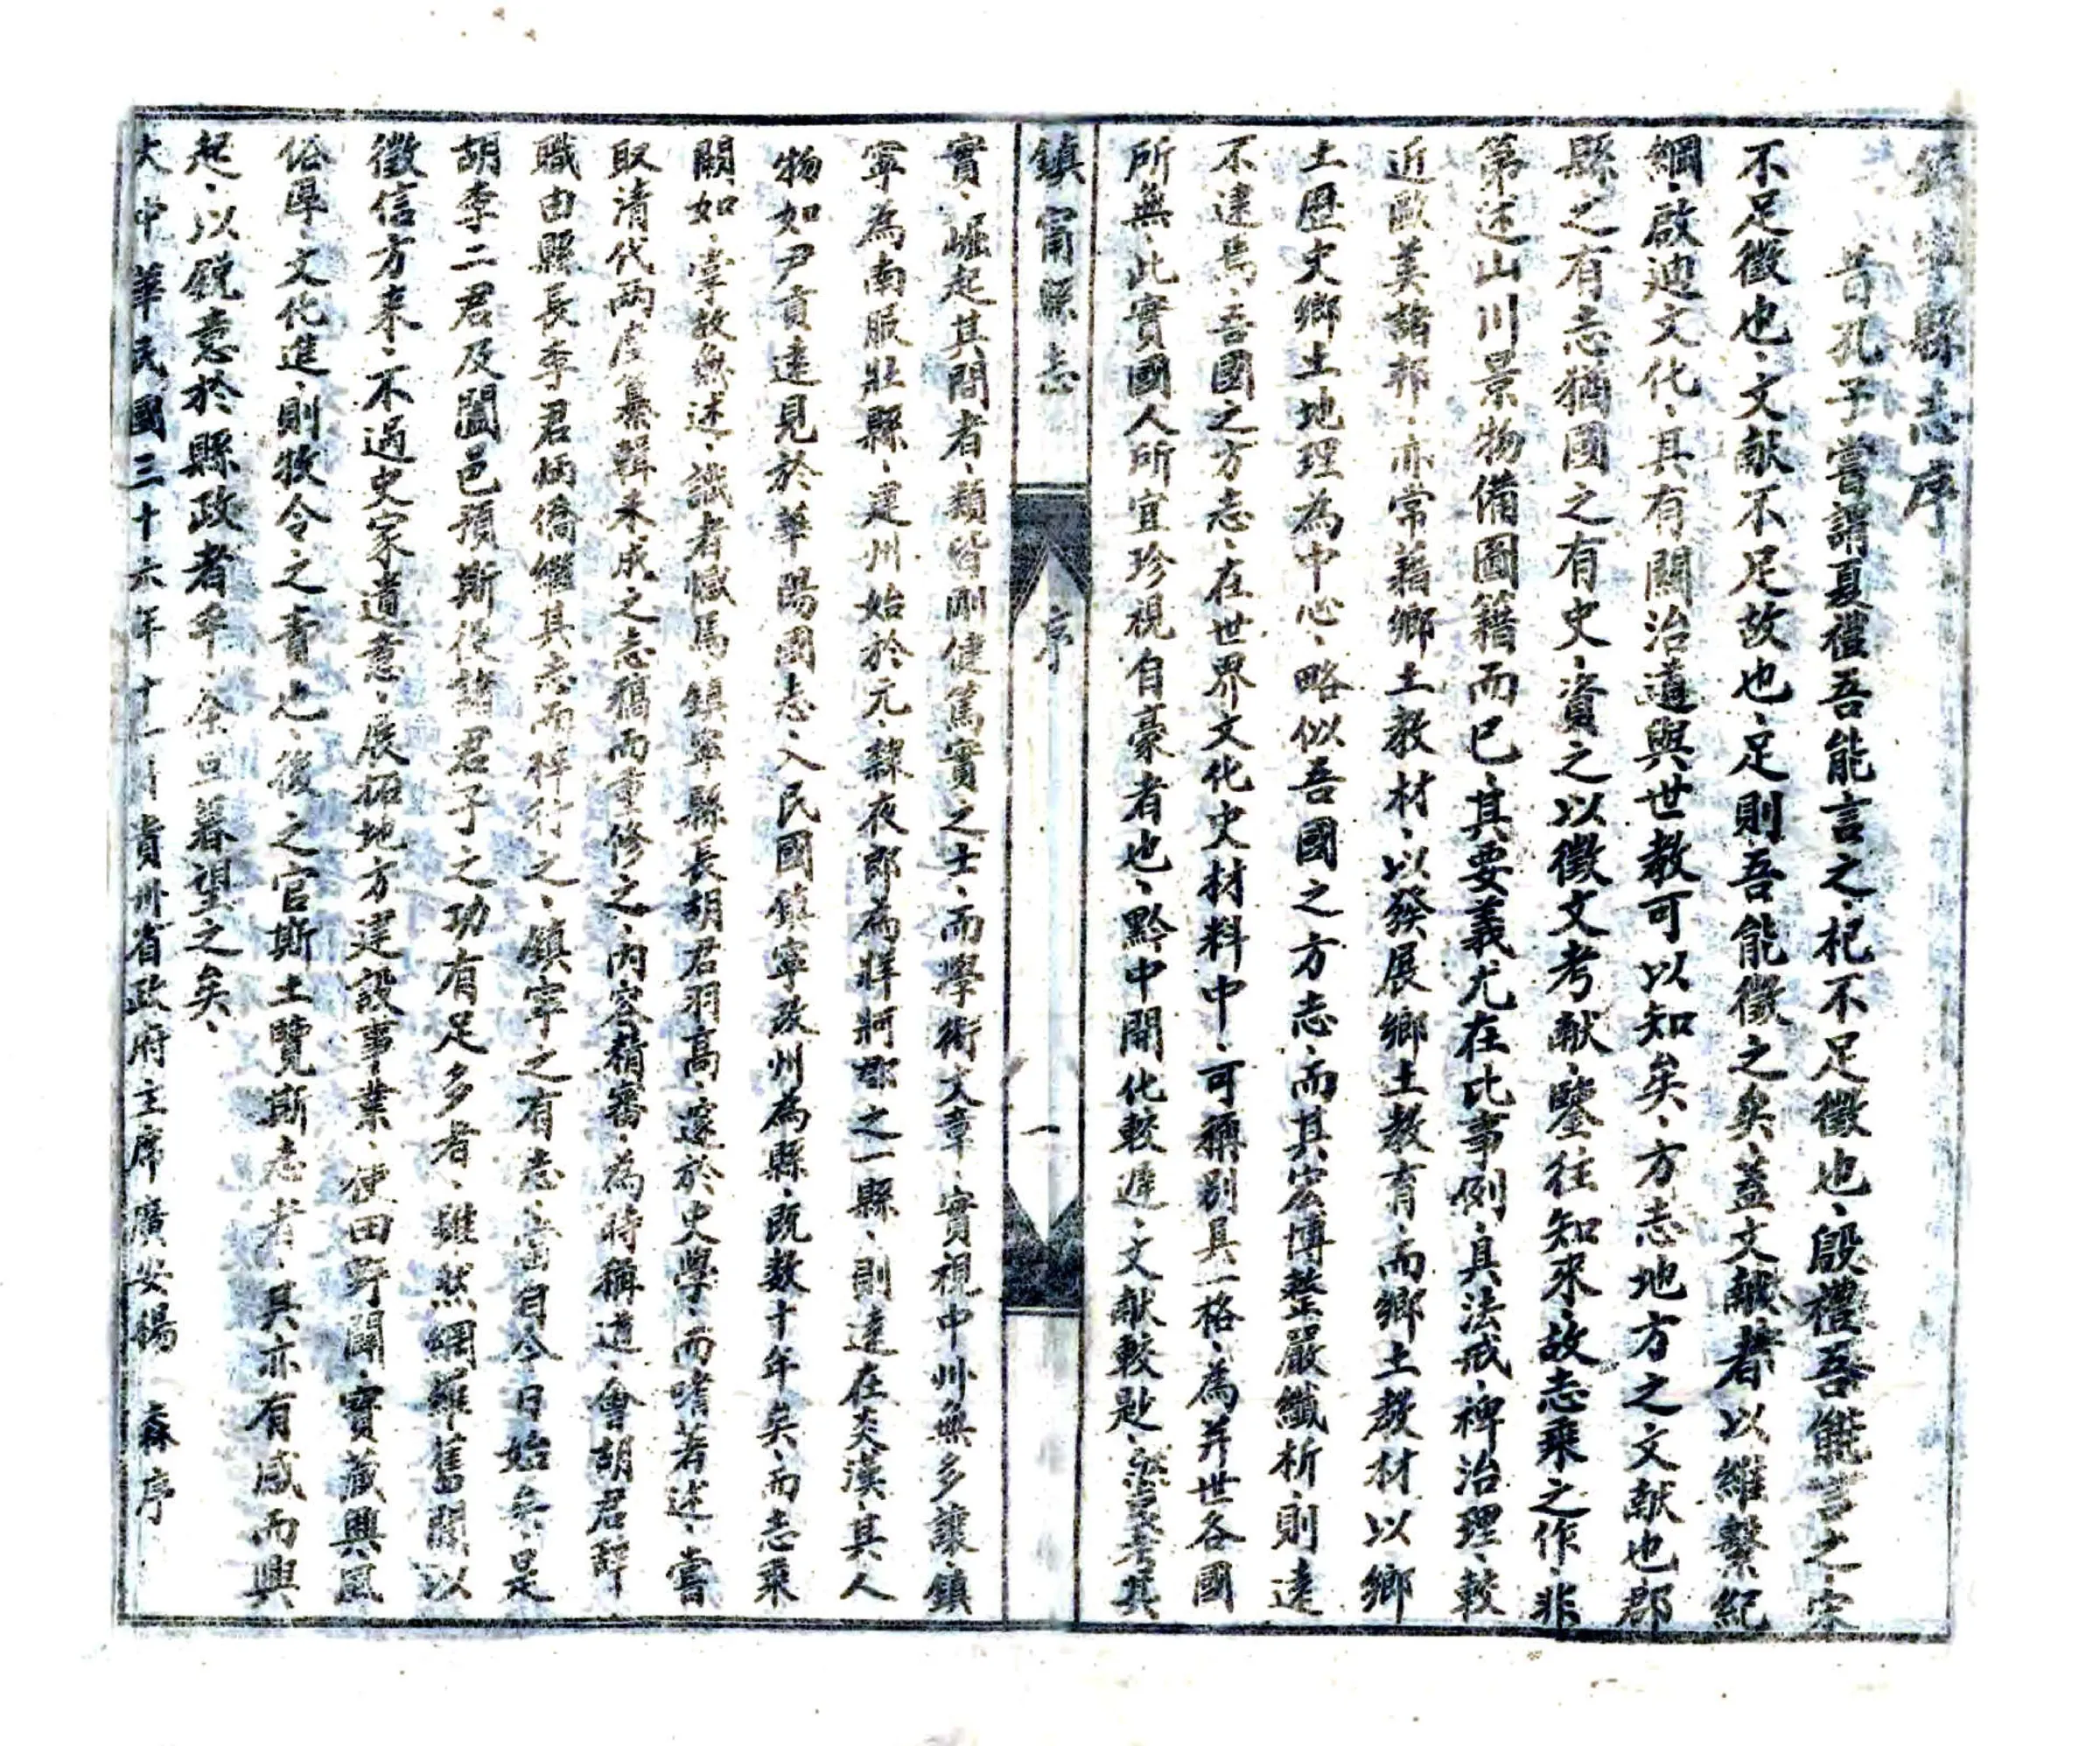 鎮寧縣志序
昔孔子嘗謂夏禮吾能言之、杞不足徵也、殷禮吾能言之、宋
不足徵也、文献不足故也、足則吾能徵之矣、蓋文献者以維繫紀
綱、啟迪文化、其有關治道與世教可以知矣、方志地方之文献也郡
縣之有志猶國之有史、資之以徵文考献、鑒往知來、故志乘之作、非
第述山川景物備圖籍而已、其要義尤在比事例、具法戒、裨治理、較
近歐美諸邦、亦常藉鄉土教材、以發展鄉土教育、而鄉土教材以鄉
土歷史鄉土地理為中心、略似吾國之方志、而其宏博整嚴纖析、則遠
不逮焉、吾國之方志、在世界文化史材料中、可稱别具一格、為并世各國
所無、此實國人所宜珍視自豪者也、黔中開化較遲、文献較尠、然考其
鎮甯縣志 序 一
實、崛起其間者、類皆剛健篤實之士、而學術文章、實視中州無多讓、鎮
寧為南服壯縣、建州始於元、隸夜郎為牂牁郡之一縣、則遠在炎漢、其人
物如尹貢逵見於華陽國志、入民國鎮寧改州為縣、既数十年矣、而志乘
闕如、掌故無述、識者憾焉、鎮寧縣長胡君羽高、邃於史學、而嗜著述、嘗
取清代兩度纂輯未成之志稿而重修之、內容精審、為時稱道、會胡君辭
職由縣長李君炳僑繼其志而梓行之、鎮寧之有志、當自今日始矣、是
胡李二君及闔邑預斯役諸君子之功有足多者、雖然網羅舊聞以
徵信方來、不過史家遺意、展拓地方建設事業、使田野闢、寶藏興、風
俗厚、文化進、則牧令之責也、後之官斯土覽斯志者、其亦有感而興
起、以銳意於縣政者乎、余旦暮望之矣、
大中華民國三十六年十一月貴州省政府主席廣安楊 森序